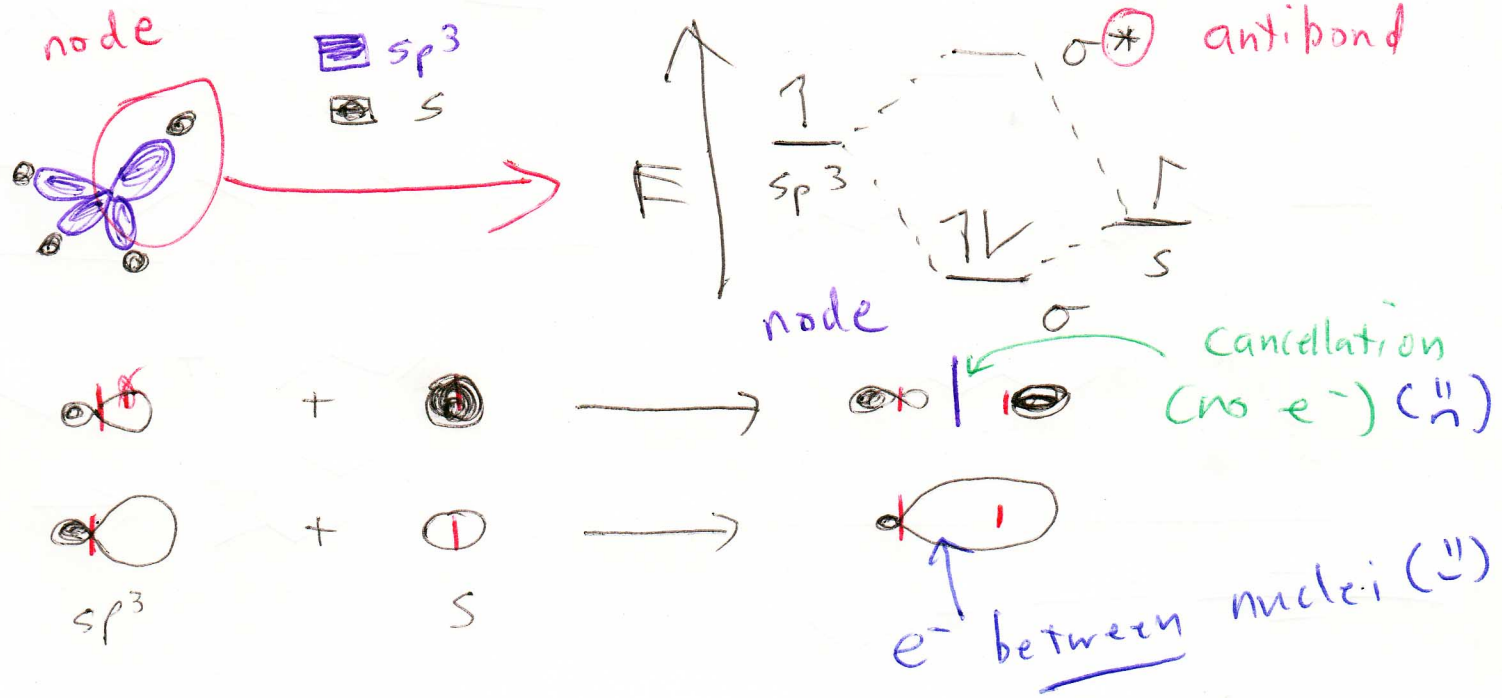 node
sp³
s
E
sp³
s
σ* antibond
σ
node
cancellation
(no e⁻)
+
+
sp³
s
e⁻ between nuclei